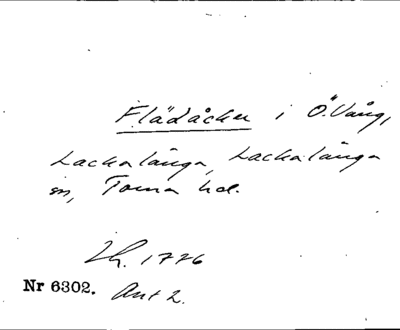 Flädåcker i Ö. Vång,
Lackalänga, Lackalänga
sn, Torna hd.
Lh. 1776
Nr 6302. Ant 2.